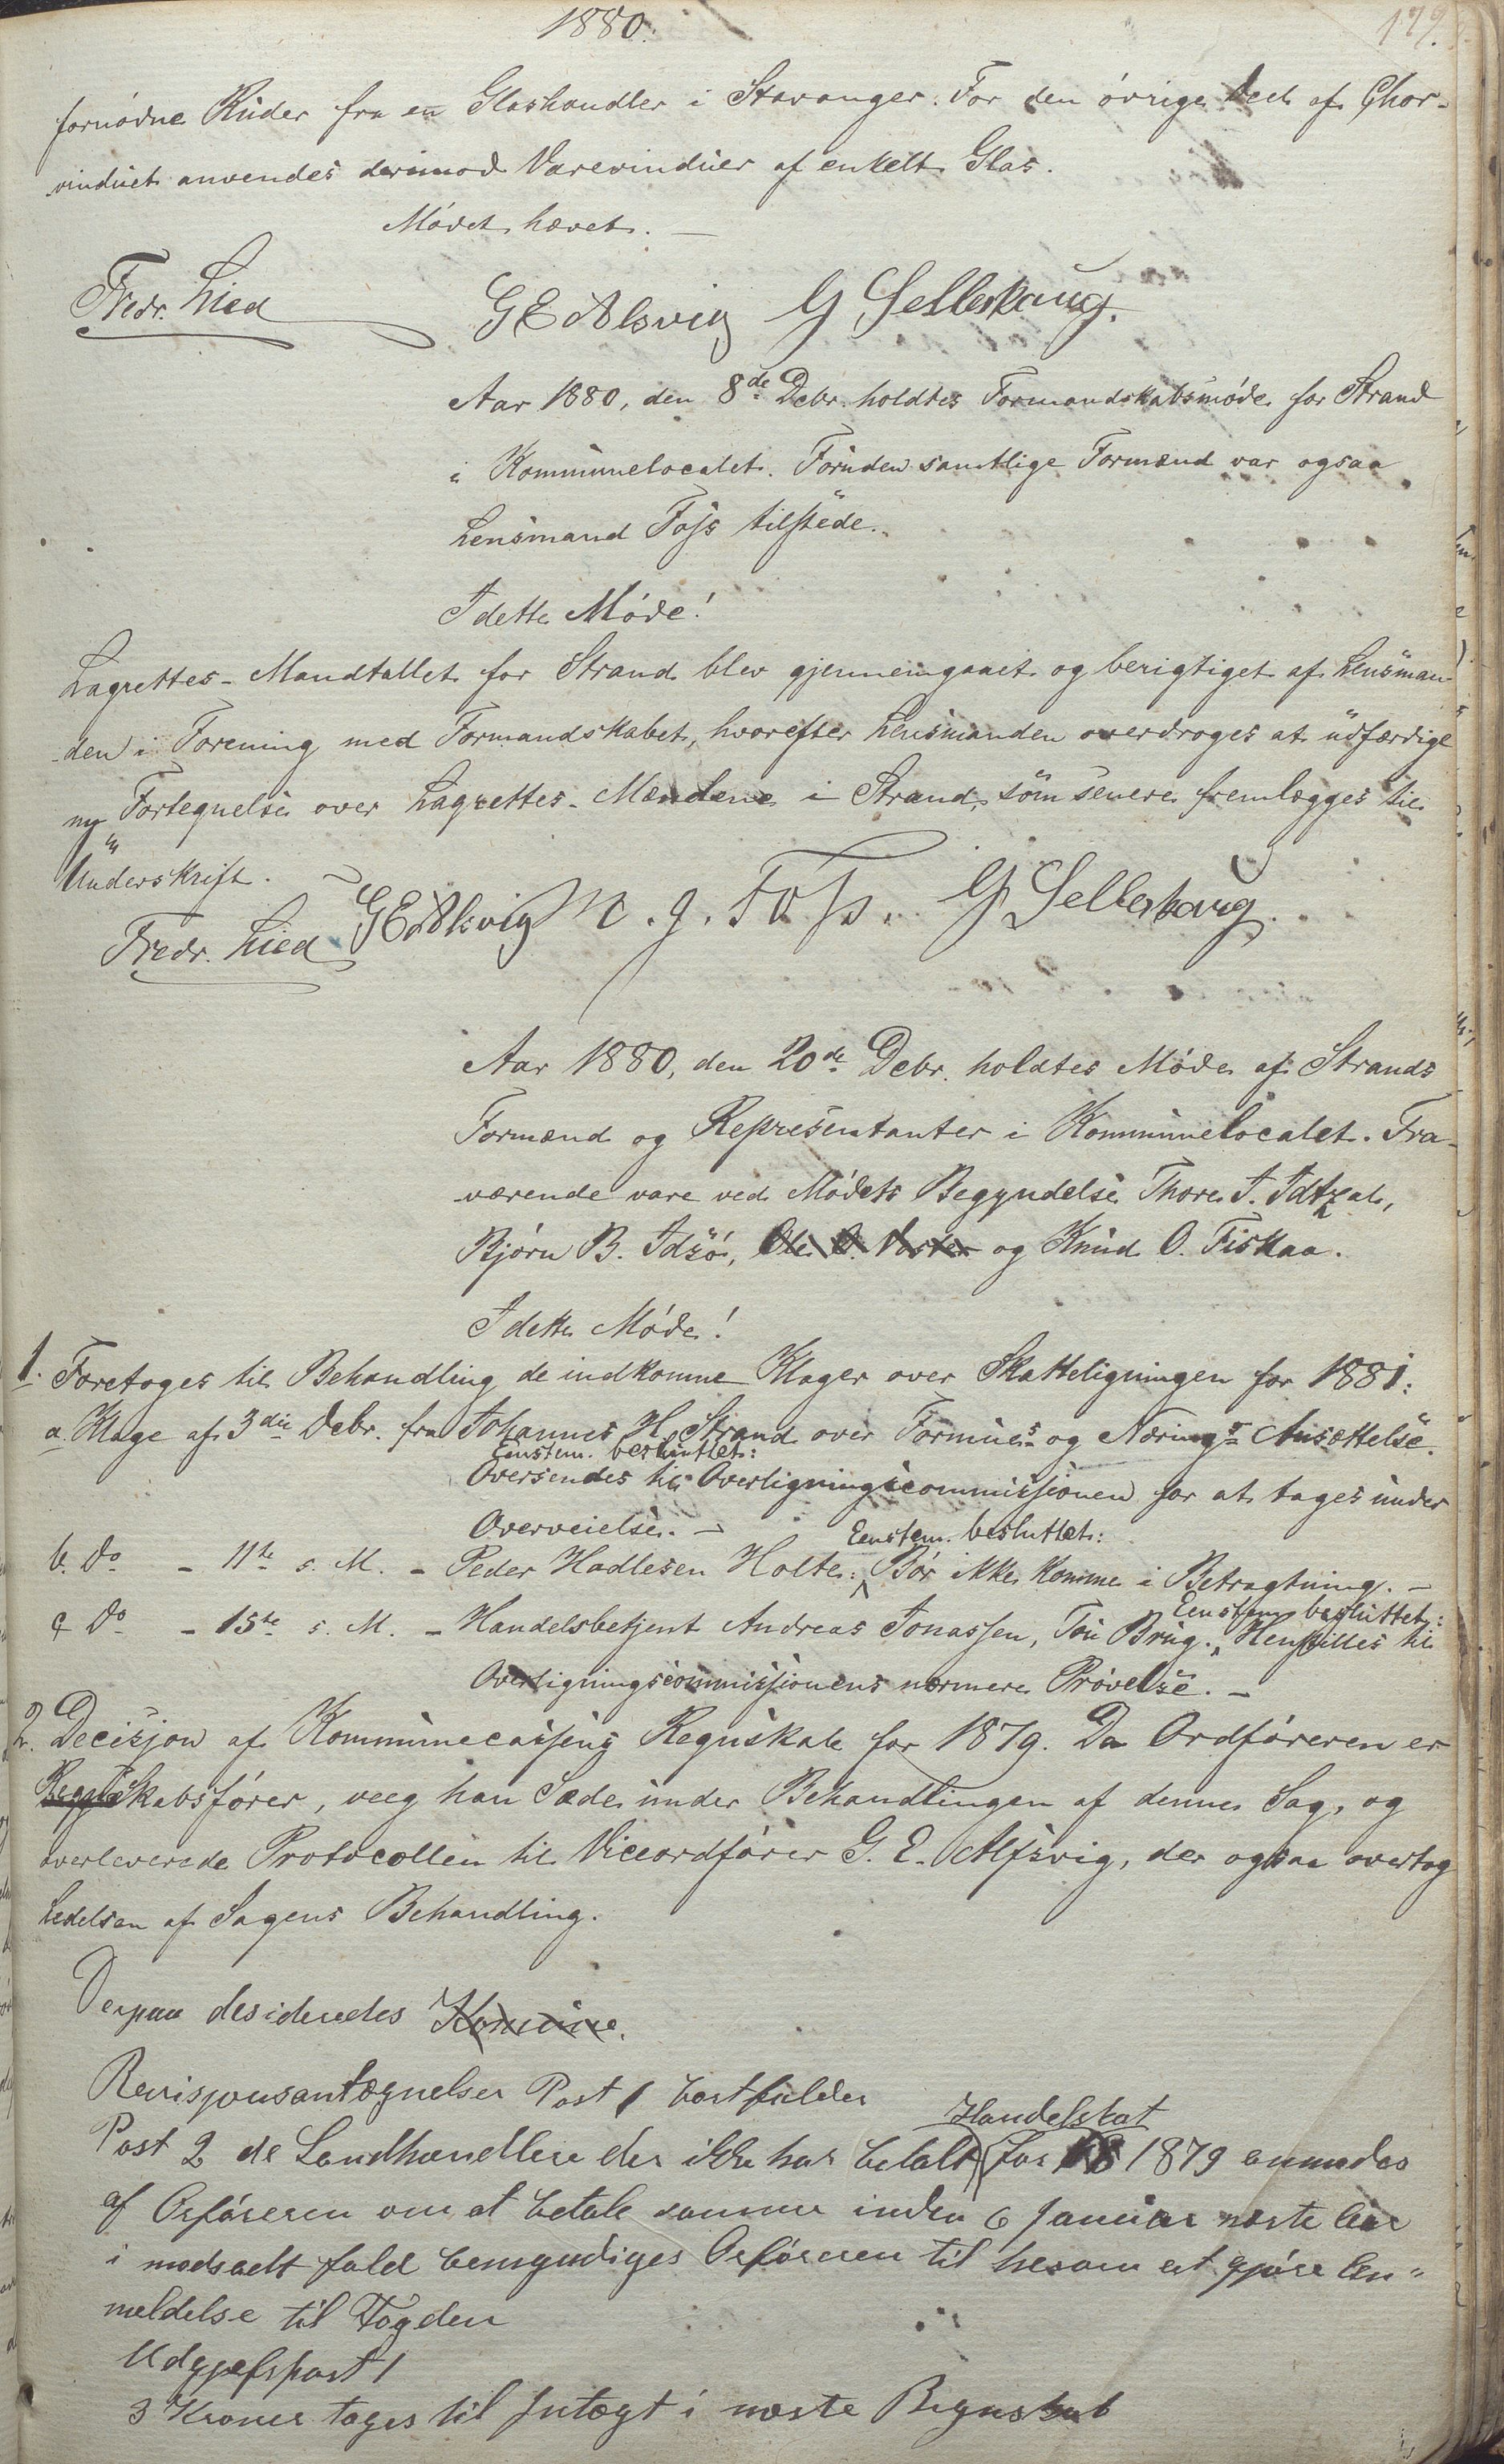 1880.
179.
fornødne Ruder fra en Glashandler i Stavanger. For den øvrige Deel af Chor-
vinduet anvendes derimod Varevinduer af enkelt Glas.
Mødet hævet. —
Fredr. Lied G E Alsvig G Sellerhaug.
Aar 1880, den 8de Debr. holdtes Formandskabsmøde for Strand
i Kommunelocalet. Foruden samtlige Formænd var ogsaa
Lensmand Foss tilstede.
I dette Møde!
Lagrettes-Mandtallet for Strand blev gjennemgaaet og berigtiget af Lensman-
den i Forening med Formandskabet, hvorefter Lensmanden overdroges at udfærdige
ny Fortegnelse over Lagrettes-Mændene i Strand, som senere fremlægges til
Underskrift.
Fredr. Lied G E Alsvig M. J. Foss. G Sellerhaug.
Aar 1880, den 20de Debr. holdtes Møde af Strands
Formænd og Repræsentanter i Kommunelocalet. Fra-
værende vare ved Mødets Begyndelse Thore T. Idtzal,
Bjørn B. Idsø, Ole O. Voster og Knud O. Fiskaa.
I dette Møde!
1. Foretoges til Behandling de indkomne Klager over Skatteligningen for 1881:
a. Klage af 3die Debr. fra Johannes H. Strand over Formues- og Nærings-Ansættelse.
Eenstem. besluttet:
Oversendes til Overligningscommissionen for at tages under
Overveielse. —
Eenstem. besluttet:
b. Do - 11te s. M. - Peder Hadlesen Holte: Bør ikke komme i Betragtning. —
Eenstem. besluttet:
c. Do - 15te s. M. - Handelsbetjent Andreas Jonassen, Tou Brug. Henstilles til
Overligningscommissionens nærmere Prøvelse. —
2. Decisjon af Kommunecassens Regnskab for 1879. Da Ordføreren er
Regnskabsfører, veeg han Sæde under Behandlingen af denne Sag, og
overleverede Protocollen til Viceordfører G. E. Alfsvig, der ogsaa overtog
Ledelsen af Sagens Behandling.
Derpaa desideredes Komune.
Revisjonsantegnelser Post 1 bortfalder
Handelskat
Post 2 de Landhandlere der ikke har betalt for 18 1879 anmodes
af Orføreren om at betale samme inden 6 Januar næste Aar
i modsadt fald bemyndiges Orføreren til hesom at gjøre An-
meldelse til Fogden
Udgjefspost 1
3 Kroner tages til Intægt i næste Regnskab